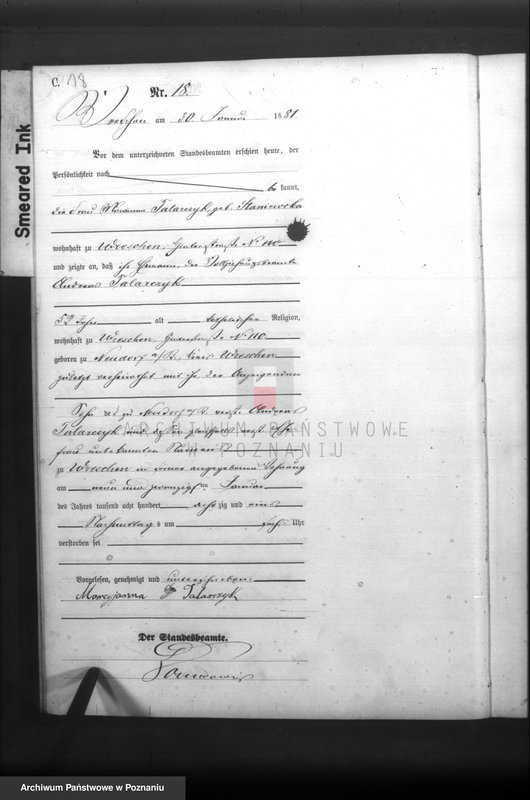 C. 18
Nr. 18.
Wreschen am 30 Januar 1881
Vor dem unterzeichneten Standesbeamten erschien heute, der
Persönlichkeit nach
be kannt,
die Frau Marianna Talarczyk geb. Staniewska
wohnhaft zu Wreschen, No 110
und zeigte an, daß ihr Ehemann, der
Andreas Talarczyk
52 Jahr alt katholischer Religion,
wohnhaft zu Wreschen, No 110
geboren zu Neudorf Kreis Wreschen
zuletzt verheirathet mit ihr, der Anzeigenden
Sohn des zu Neudorf Andreas
Talarczyk und dessen
frau unbekannten Namens
zu Wreschen in ihrer angegebenen Wohnung
am neun und zwanzigsten Januar
des Jahres tausend acht hundert acht zig und eins
Nachmittags um fünf Uhr
verstorben sei
Vorgelesen, genehmigt und unterschrieben
Marcyjanna Talarczyk
Der Standesbeamte.
Smeared Ink
ARCHIWUM PAŃSTWOWE
W POZNANIU
Archiwum Państwowe w Poznaniu